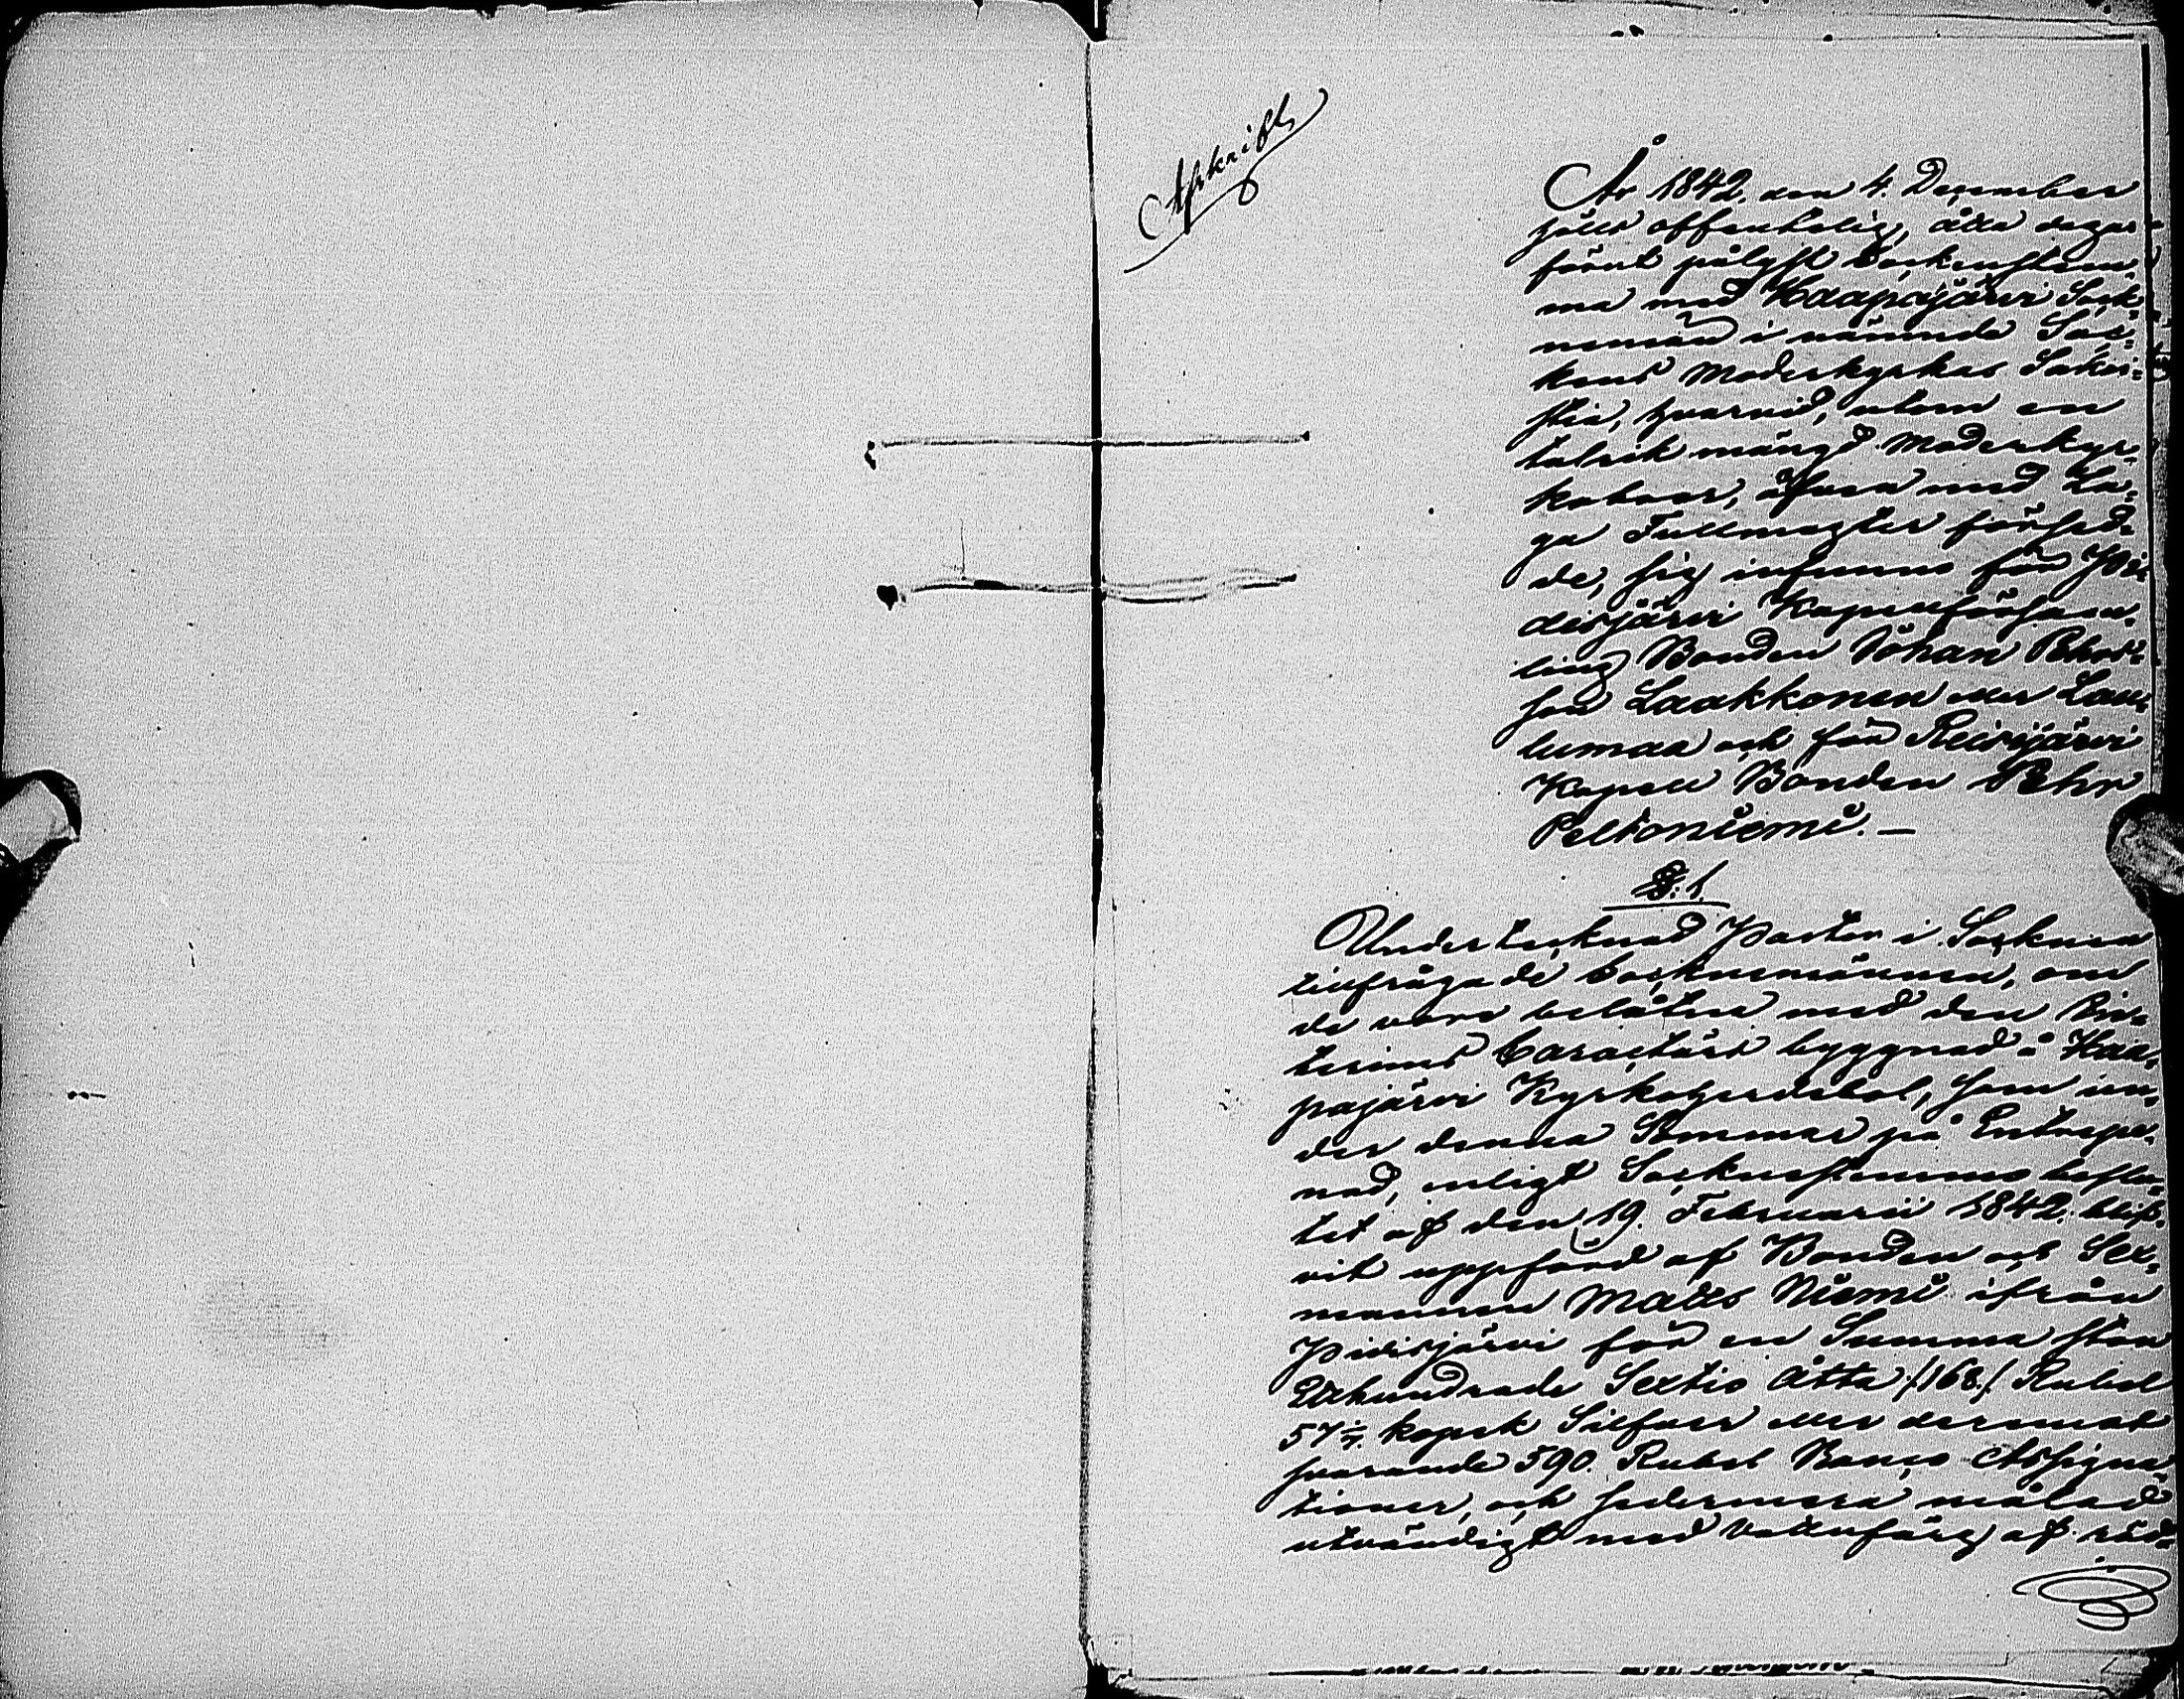 Afskrift
År 1842. den 4. December
hölls offentelig, åtta dagar
förut pålyst Sockenstäm-
ma med Haapajärvi Sock-
nemän i nämnde Soc-
kens Moderkyrkas Sakri-
stia, hvarvid, utom en
talrik mängd Moderkyr-
koboer, äfven med La-
ga Fullmagter försed-
de, sig infunno för Pi-
disjärvi Kapellförsam-
ling Bonden Johan Pehrs-
son Laakkonen eller Lau-
lumaa och för Reisjärvi
Kapell Bonden Pehr
Peltoniemi. —
§. 1.
Undertecknad Pastor i Socknen
tillfrågade Socknemännen, om
de voro belåtne med den Vin-
terings Caractärs byggnad å Haa-
pajärvi Kyrkoherdebol, som un-
der denna Sommar på Entrepe-
nad, enligt Sockenstämmobeslu-
tet af den 19. Februarii 1842. blif-
vit uppförd af Bonden och Sex-
mannen Matts Niemi ifrån
Pidisjärvi för en Summa stor
Etthundrade Sextio Åtta /:168:/ Rubel
57 1/7. kopek Silfver eller deremot
svarande 590. Rubel Banco Assigna-
tioner, och sedermera målad
utvändigt med Vattenfärg af röd-